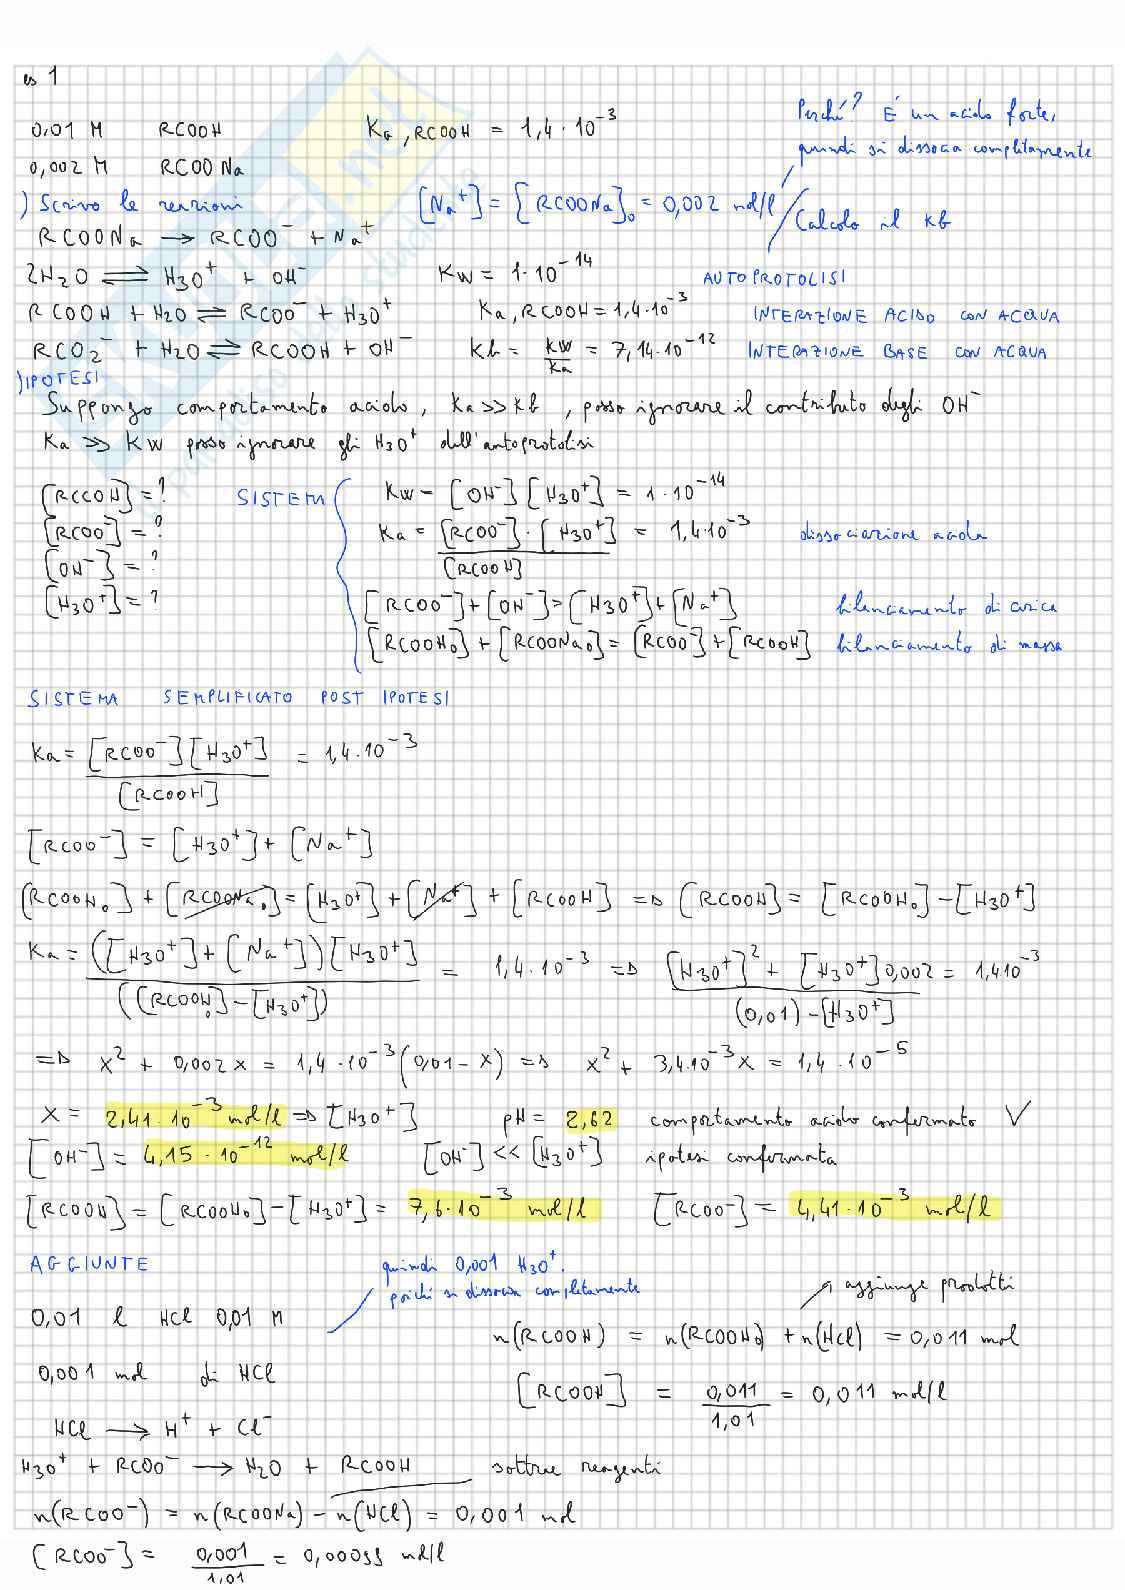 es 1
Perché? È un acido forte,
quindi si dissocia completamente
0,01 M RCOOH Ka, RCOOH = 1,4·10⁻³
0,002 M RCOONa
) Scrivo le reazioni [Na⁺] = [RCOONa]₀ = 0,002 mol/l
Calcolo il Kb
RCOONa → RCOO⁻ + Na⁺
2H₂O ⇌ H₃O⁺ + OH⁻ Kw = 1·10⁻¹⁴ AUTOPROTOLISI
RCOOH + H₂O ⇌ RCOO⁻ + H₃O⁺ Ka, RCOOH = 1,4·10⁻³ INTERAZIONE ACIDO CON ACQUA
RCO₂⁻ + H₂O ⇌ RCOOH + OH⁻ Kb = Kw/Ka = 7,14·10⁻¹² INTERAZIONE BASE CON ACQUA
)IPOTESI
Suppongo comportamento acido, Ka >> Kb, posso ignorare il contributo degli OH⁻
Ka >> Kw posso ignorare gli H₃O⁺ dell'autoprotolisi
[RCCOH] = ? SISTEMA Kw = [OH⁻][H₃O⁺] = 1·10⁻¹⁴
[RCOO⁻] = ? Ka = [RCOO⁻]·[H₃O⁺]/[RCOOH] = 1,4·10⁻³ dissociazione acida
[OH⁻] = ?
[H₃O⁺] = ? [RCOO⁻] + [OH⁻] = [H₃O⁺] + [Na⁺] bilanciamento di carica
[RCOOH₀] + [RCOONa₀] = [RCOO⁻] + [RCOOH] bilanciamento di massa
SISTEMA SEMPLIFICATO POST IPOTESI
Ka = [RCOO⁻][H₃O⁺]/[RCOOH] = 1,4·10⁻³
[RCOO⁻] = [H₃O⁺] + [Na⁺]
[RCOOH₀] + [RCOONa₀] = [H₃O⁺] + [Na⁺] + [RCOOH] => [RCOOH] = [RCOOH₀] - [H₃O⁺]
Ka = ([H₃O⁺] + [Na⁺])[H₃O⁺]/([RCOOH₀] - [H₃O⁺]) = 1,4·10⁻³ => [H₃O⁺]² + [H₃O⁺]0,002/(0,01) - [H₃O⁺] = 1,410⁻³
=> x² + 0,002x = 1,4·10⁻³(0,01 - x) => x² + 3,4·10⁻³x = 1,4·10⁻⁵
x = 2,41·10⁻³ mol/l => [H₃O⁺] pH = 2,62 comportamento acido confermato √
[OH⁻] = 4,15·10⁻¹² mol/l [OH⁻] << [H₃O⁺] ipotesi confermata
[RCOOH] = [RCOOH₀] - [H₃O⁺] = 7,6·10⁻³ mol/l [RCOO⁻] = 4,41·10⁻³ mol/l
AGGIUNTE quindi 0,001 H₃O⁺.
poiché si dissocia completamente aggiunge prodotti
0,01 l HCl 0,01 M n(RCOOH) = n(RCOOH₀) + n(HCl) = 0,011 mol
0,001 mol di HCl [RCOOH] = 0,011/1,01 = 0,011 mol/l
HCl → H⁺ + Cl⁻
H₃O⁺ + RCOO⁻ → H₂O + RCOOH sottrae reagenti
n(RCOO⁻) = n(RCOONa) - n(HCl) = 0,001 mol
[RCOO⁻] = 0,001/1,01 = 0,00099 mol/l